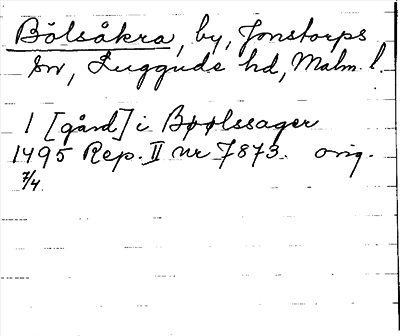 Bölsåkra, by, Jonstorps
sn, Luggude hd, Malm. l.
1 [gård] i Bøølssager
1495 Rep. II nr 7873. orig.
7/4.